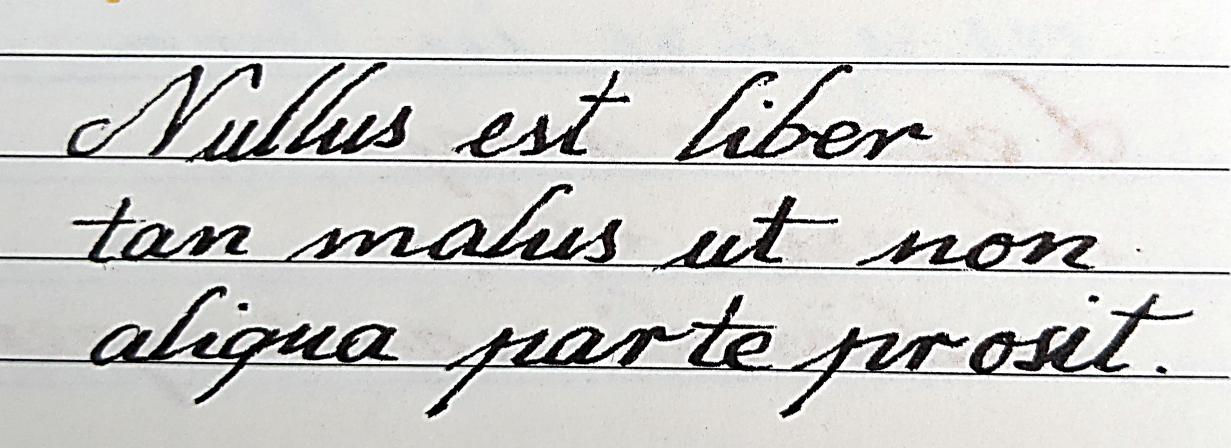 Nullus est liber
tan malus ut non
aliqua parte prosit.